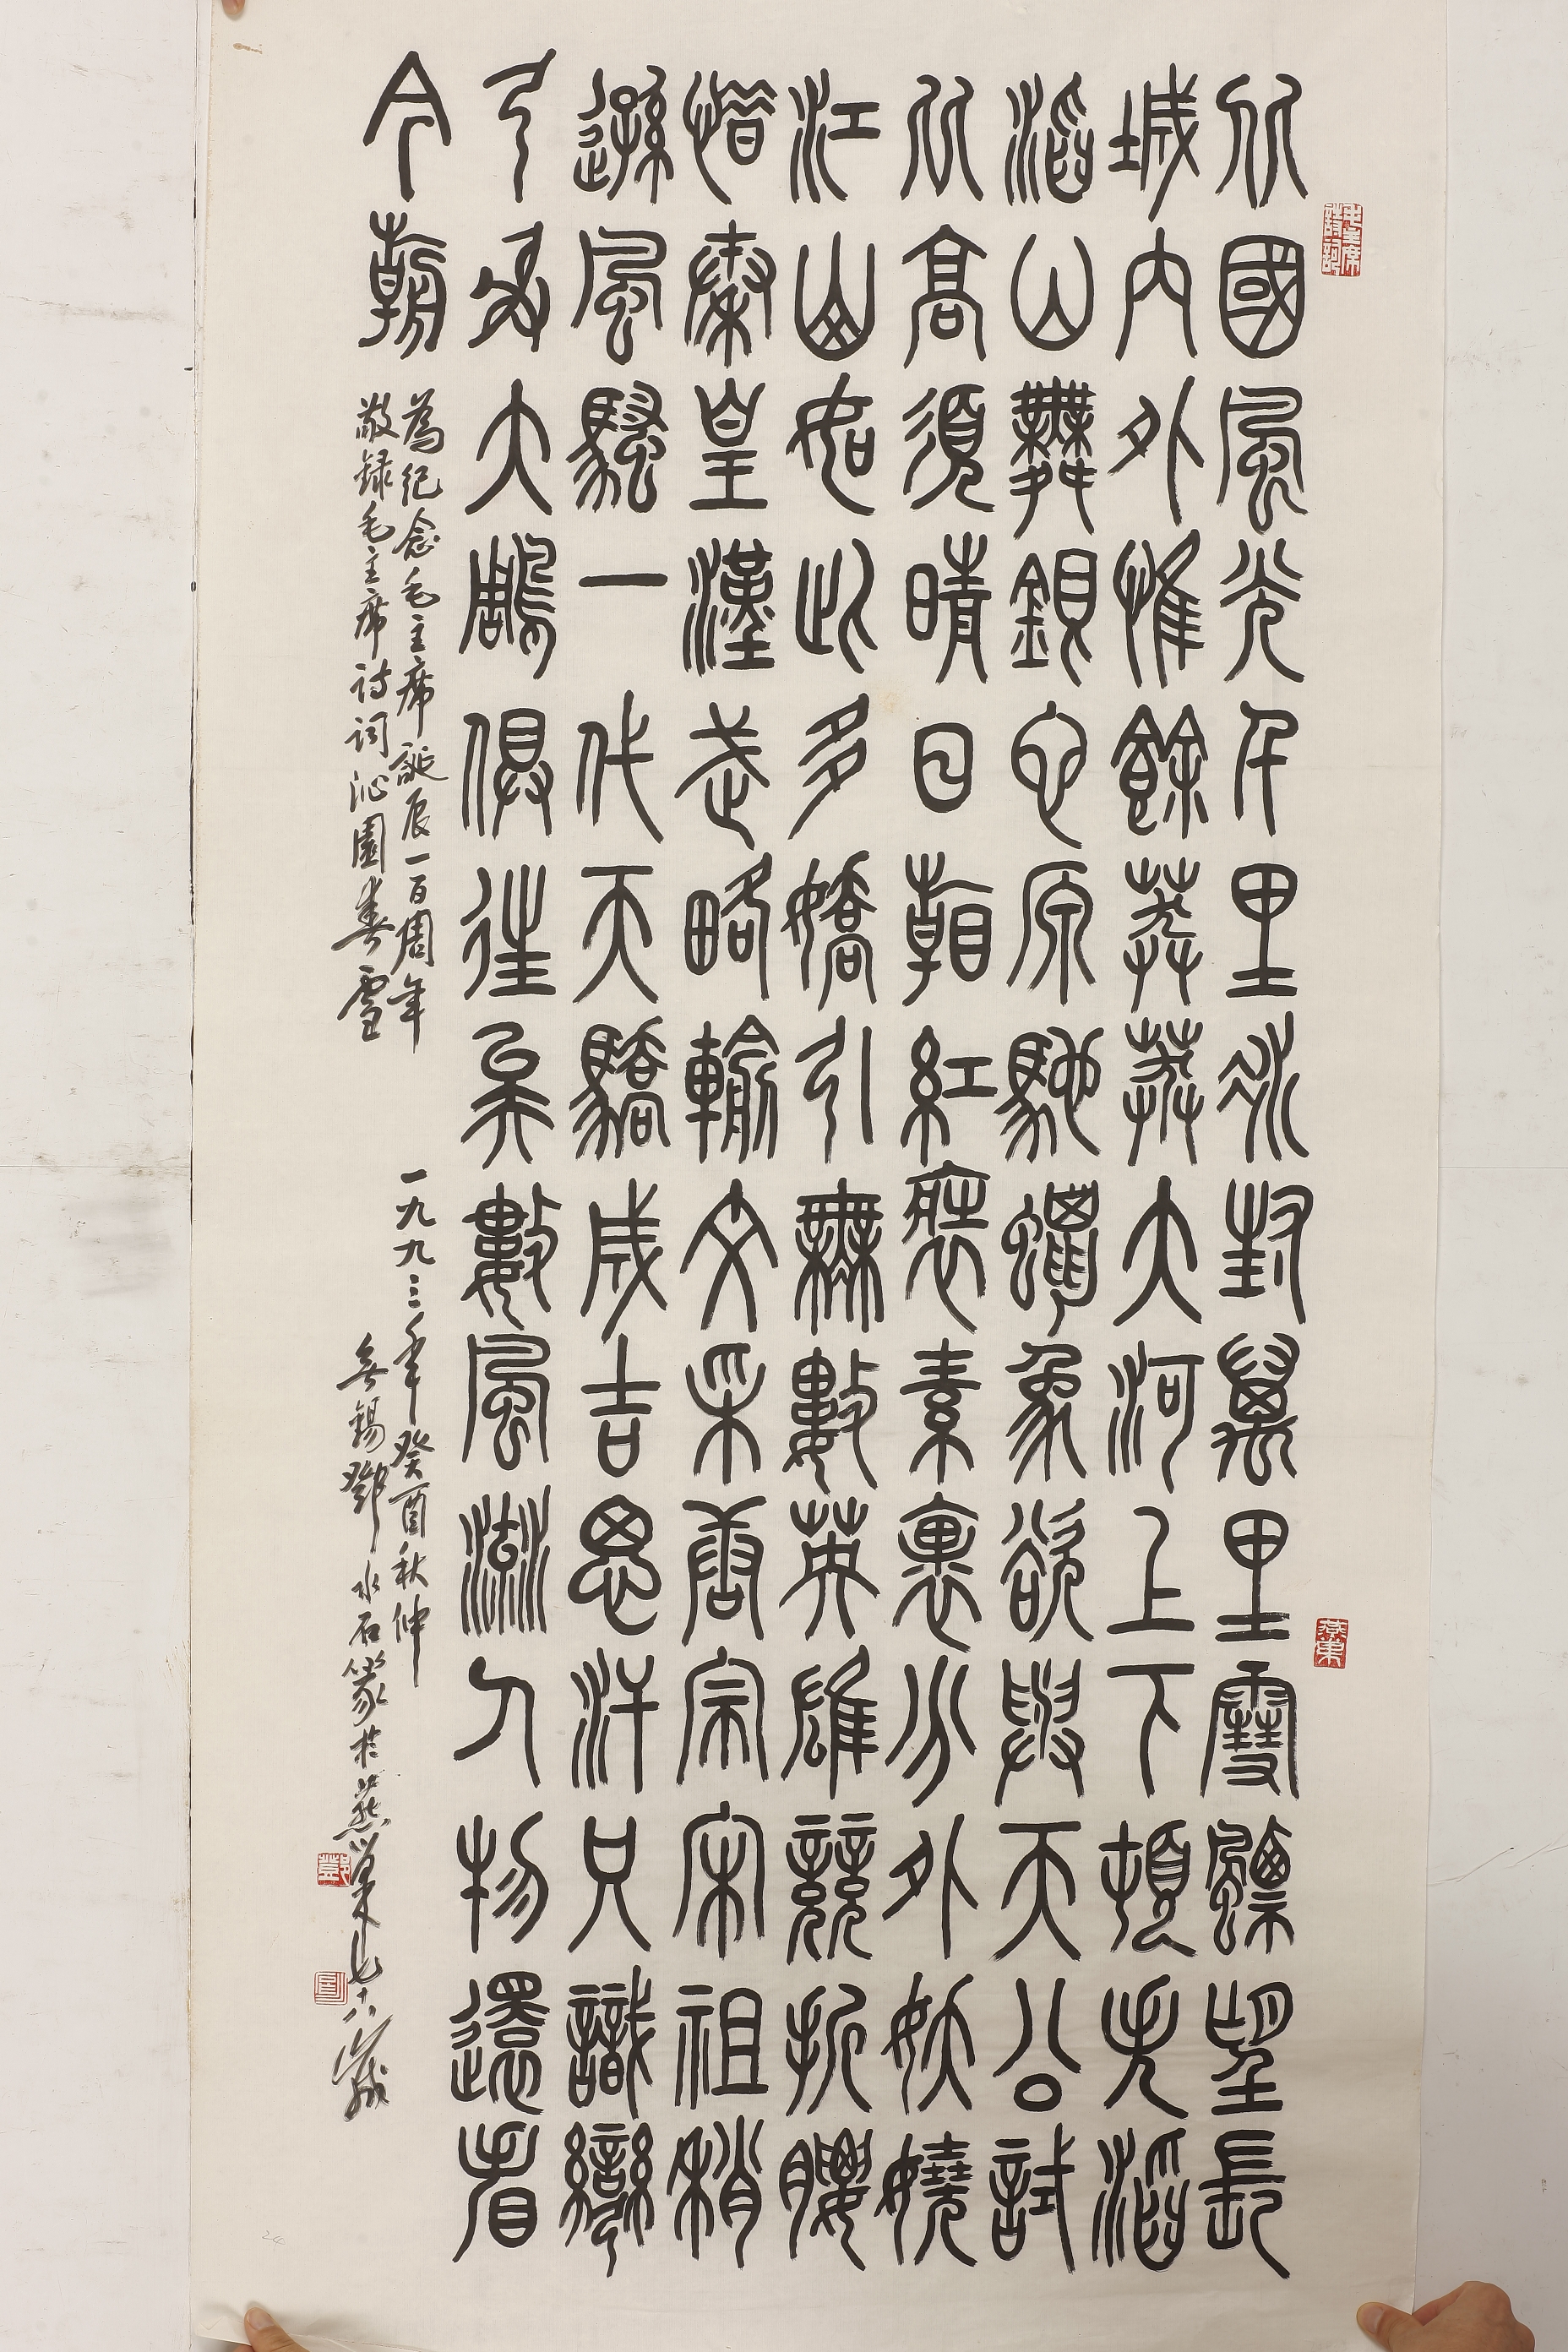 毛主席詩詞
北國風光千里冰封萬里雪飄望長
城內外惟餘莽莽大河上下頓失滔
滔山舞銀它原馳蠟象欲與天公試
比高須晴日看紅裝素裹分外妖嬈
江山如此多嬌引無數英雄競折腰
惜秦皇漢武略輸文采唐宗宋祖稍
遜風騷一代天驕成吉思汗只識彎
弓射大鵰俱往矣數風流人物還看
今朝
為紀念毛主席誕辰一百周年
敬録毛主席诗词沁園春雪
一九九三年癸酉秋仲
無錫鄧水石篆於燕巢七十八歲